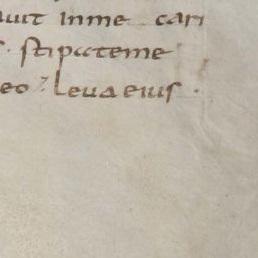 auit inme cari
· stipateme
eo · leuaeius ·